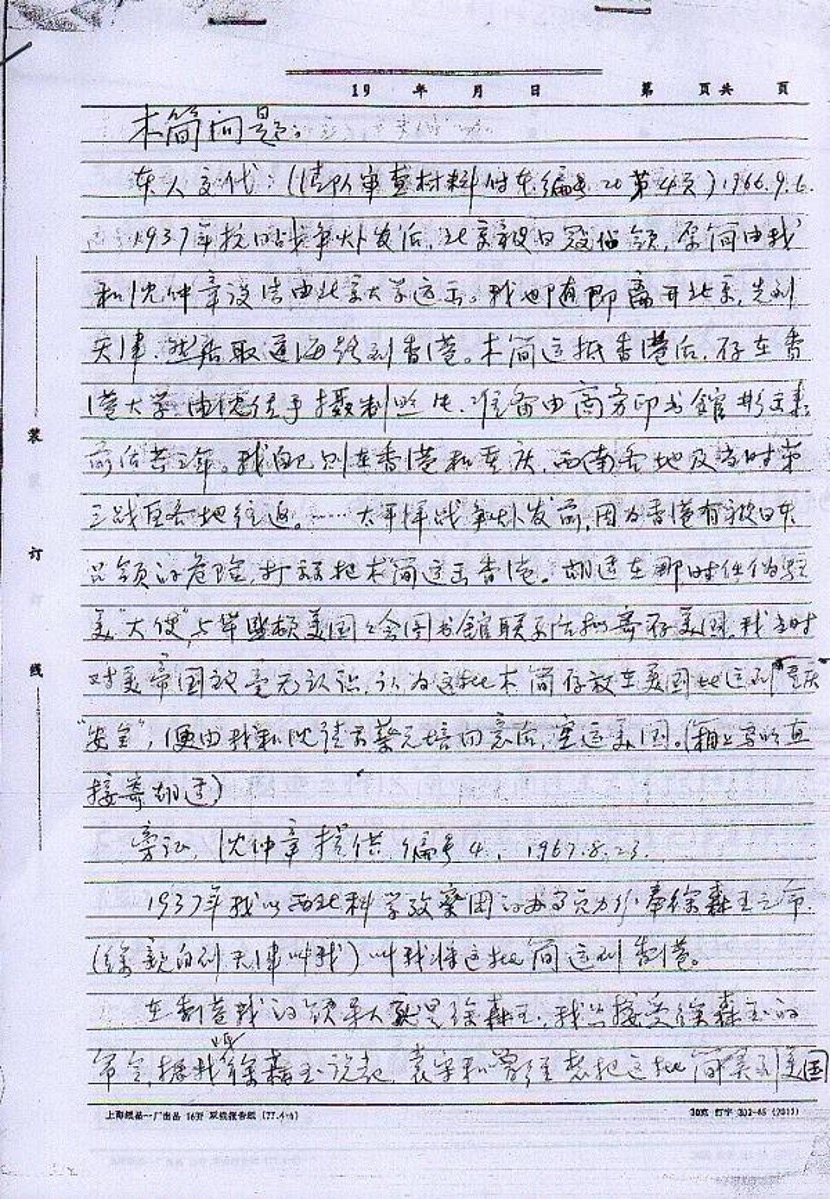 19 年 月 日 第 页共 页
木简问题:
本人交代:(清队审查材料付本编号20第4页)1966.9.6.
1937年抗日战争爆发后,北京被日寇占领,原简由我
和沈仲章设法由北京大学运出。我也随即离开北京,先到
天津,然后取道海路到香港。木简运抵香港后,存在香
港大学,由沈经手摄制照片,准备由商务印书馆影印,
前后共三年。我自己则在香港和重庆,西南各地及当时第
三战区各地往返。……太平洋战争爆发前,因为香港有被日本
占领的危险,打算把木简运出香港。胡适在那时任伪驻
美"大使",与华盛顿美国国会图书馆联系后拟寄存美国,我当时
对美帝国主义毫无认识,认为这批木简存放在美国比运到重庆
"安全",便由我和沈征求蔡元培同意后,运美国。(箱上写的直
接寄胡适)
旁证,沈仲章提供 编号4, 1967.8.23.
1937年我以西北科学考察团的干事员力,奉徐森玉之命,
(徐亲自到天津叫我)叫我将这批简运到香港。
在香港我的领导人就是徐森玉,我只接受徐森玉的
命令,据我听徐森玉说起,袁守和曾经想把这批简弄到美国
装
订
线
上海纸品一厂出品 16开 双线报告纸 (77.4·a)